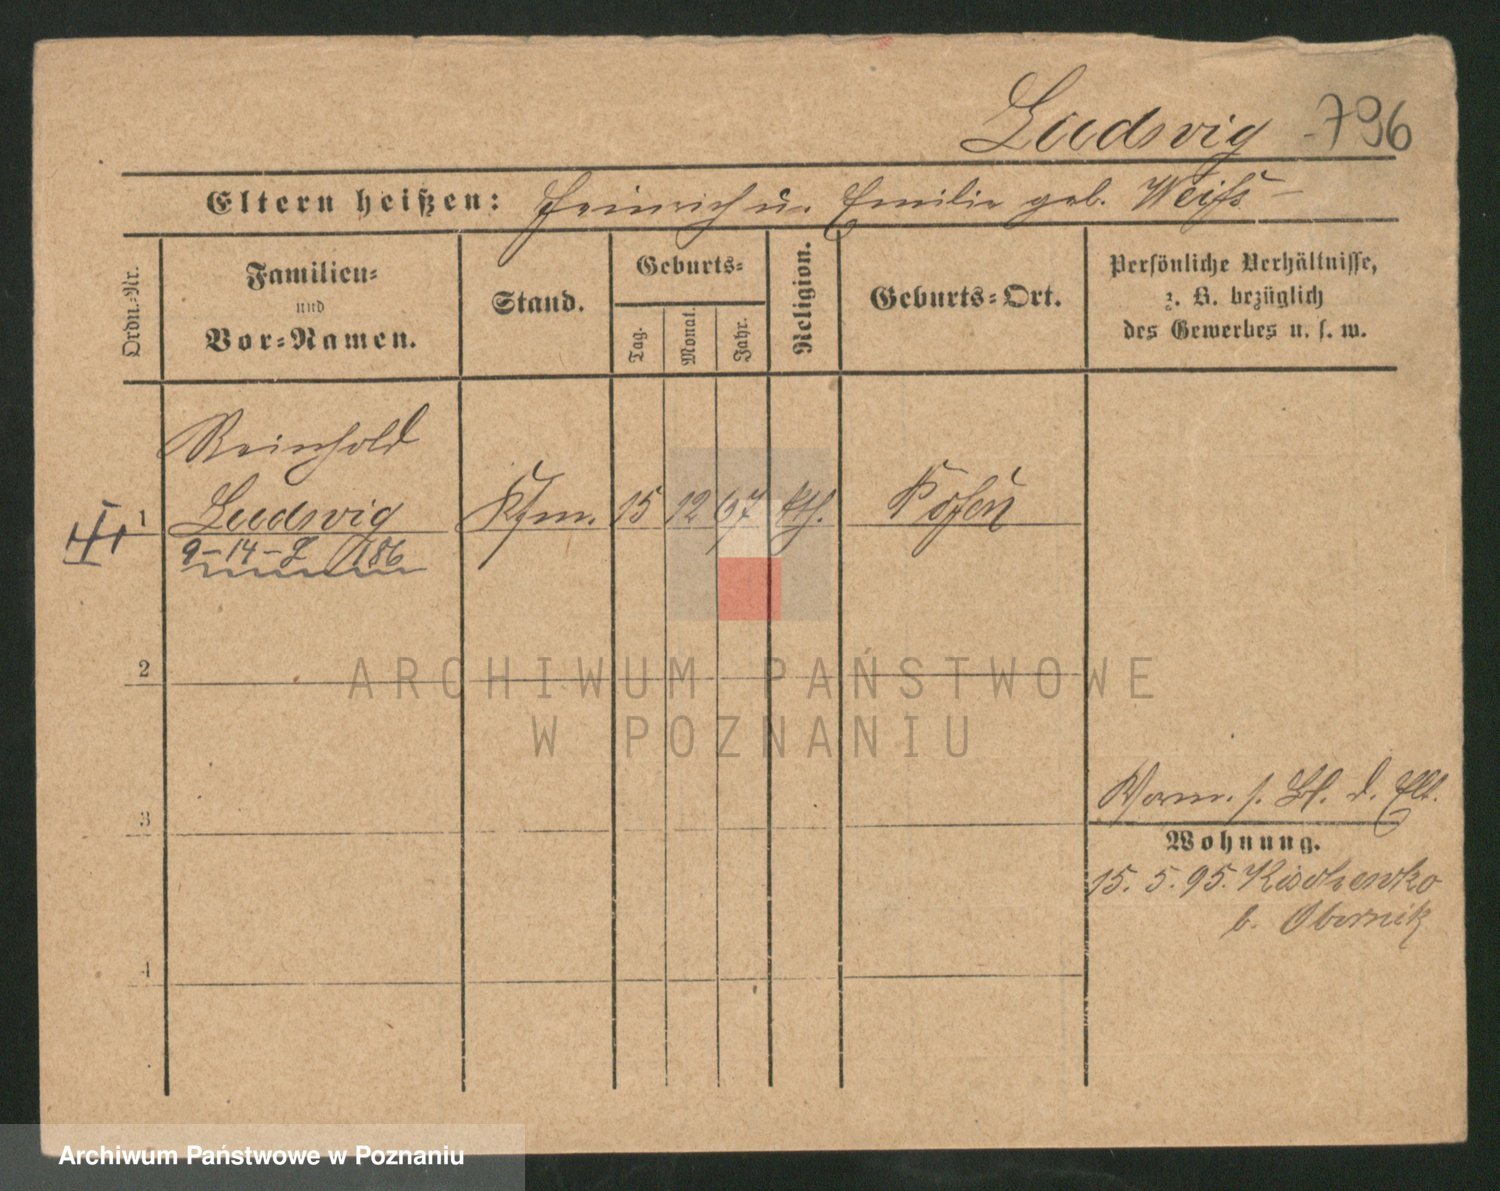 Ludwig 796
Eltern heißen: Heinrich u. Emilie geb. Weiß
Ordn.-Nr.
Familien-
und
Vor-Namen.
Stand.
Geburts-
Tag.
Monat.
Jahr.
Religion.
Geburts-Ort.
Persönliche Verhältnisse,
z. B. bezüglich
des Gewerbes u. s. w.
Reinhold
1 Ludwig Kfm. 15 12 67 kth. Posen
9-14- 186
2
3
4
Worm. s. Bl. d. Elt.
Wohnung.
15. 5. 95. Kischewko
b. Obornik
ARCHIWUM PAŃSTWOWE
W POZNANIU
Archiwum Państwowe w Poznaniu